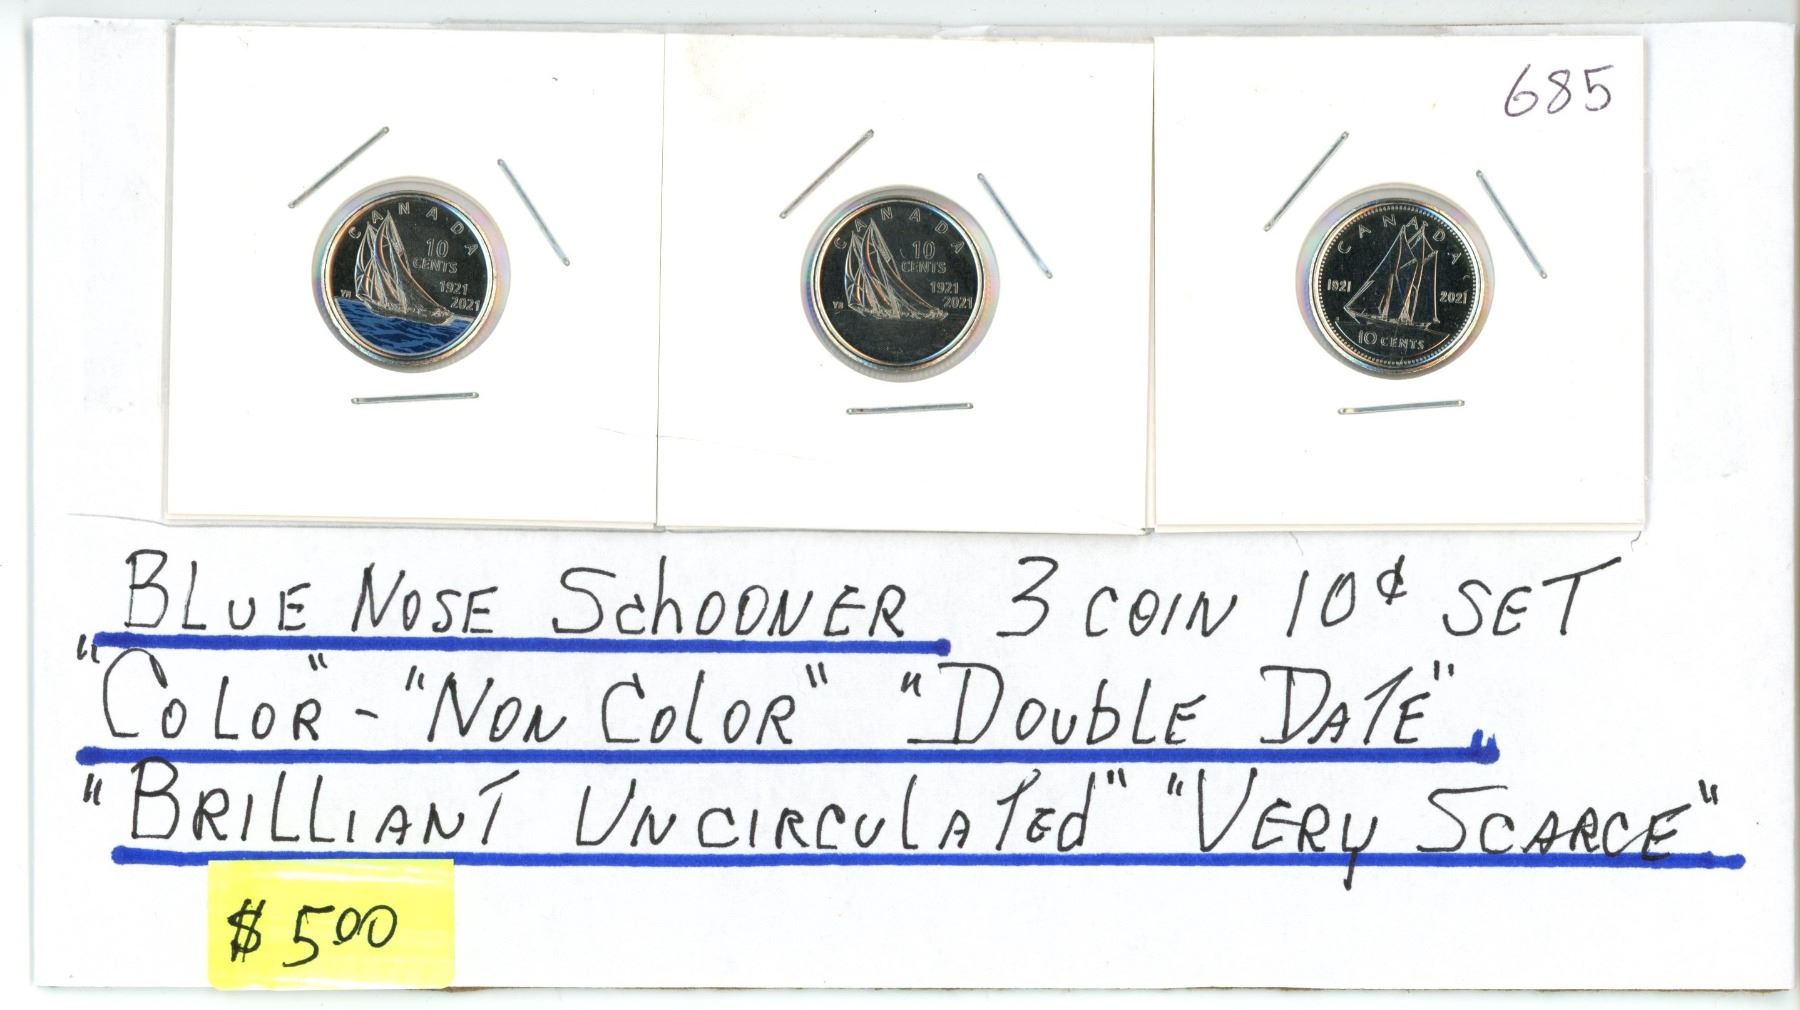 685
CANADA
10
CENTS
1921
2021
YB
CANADA
10
CENTS
1921
2021
YB
CANADA
1921 2021
10 CENTS
BLUE NOSE SCHOONER 3 COIN 10¢ SET
"COLOR" - "NON COLOR" "DOUBLE DATE"
"BRILLIANT UNCIRCULATED" "VERY SCARCE"
$ 5.00